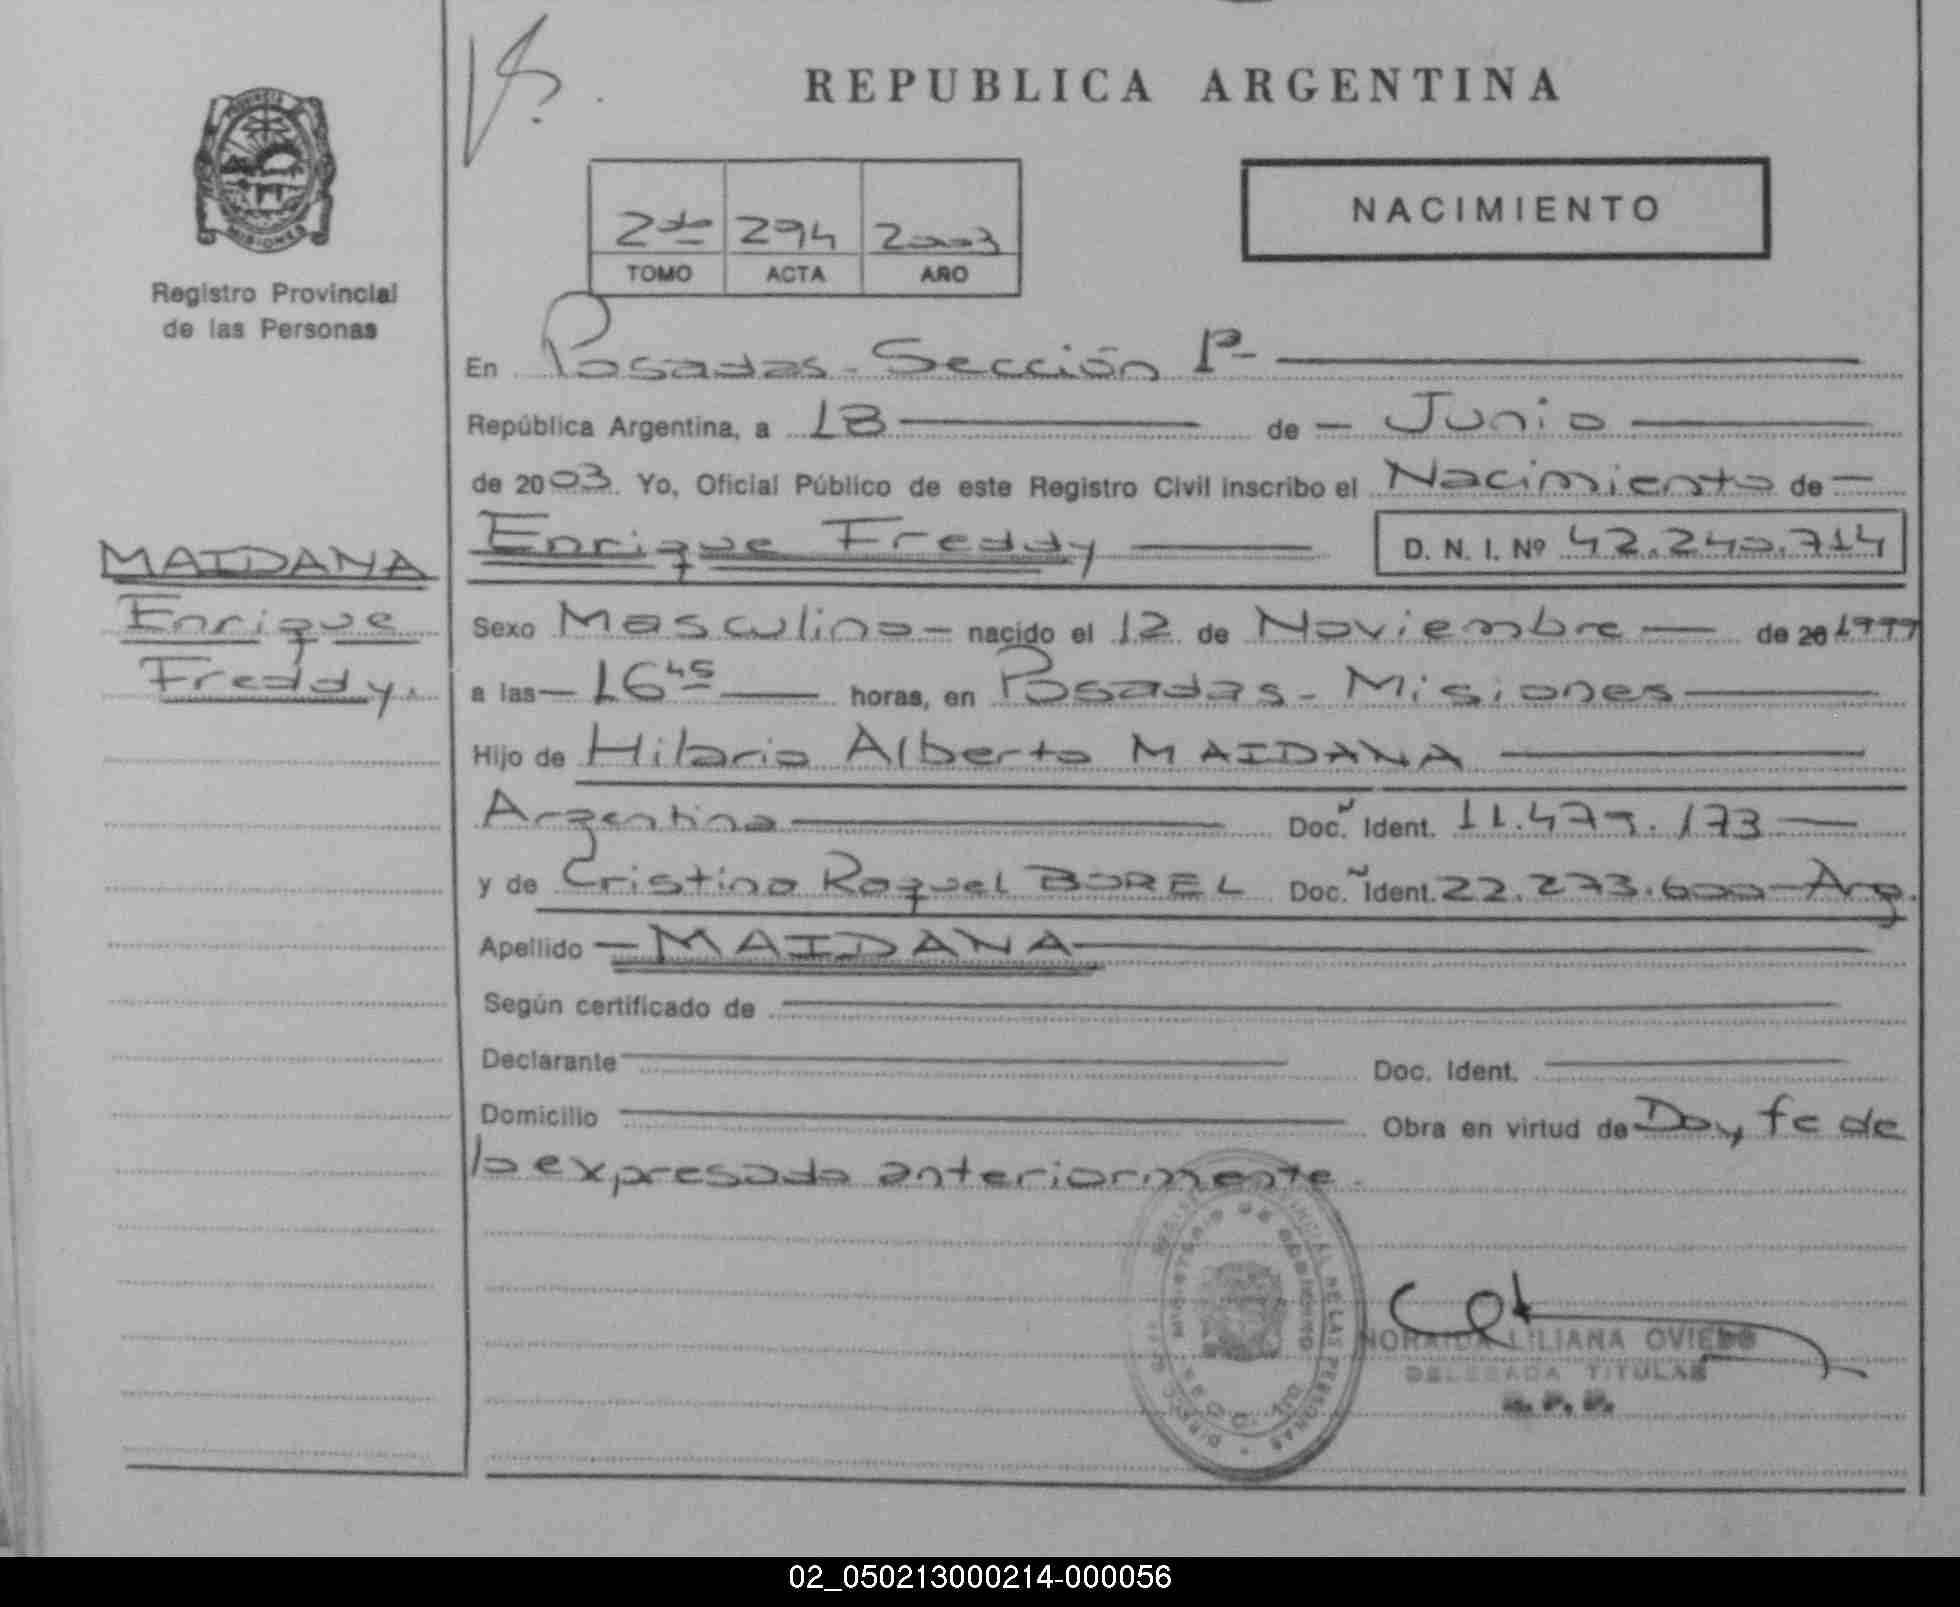 REPUBLICA ARGENTINA
NACIMIENTO
2do 294 2003
TOMO ACTA AÑO
PROVINCIA
MISIONES
Registro Provincial
de las Personas
En Posadas - Sección 1ª
República Argentina, a 18 de Junio
de 2003. Yo, Oficial Público de este Registro Civil inscribo el Nacimiento de
Enrique Freddy D. N. I. Nº 42.240.714
MAIDANA
Enrique
Freddy.
Sexo Masculino nacido el 12 de Noviembre de 20 1999
a las 16 45 horas, en Posadas - Misiones
Hijo de Hilario Alberto MAIDANA
Argentino Doc. Ident. 11.479.173
y de Cristina Raquel BOREL Doc. Ident. 22.273.600 - Arg.
Apellido MAIDANA
Según certificado de
Declarante Doc. Ident.
Domicilio Obra en virtud de Doy fe de
lo expresado anteriormente.
MINISTERIO DE GOBIERNO
NORAIDA LILIANA OVIEDO
DELEGADA TITULAR
R. P. P.
02_050213000214-000056